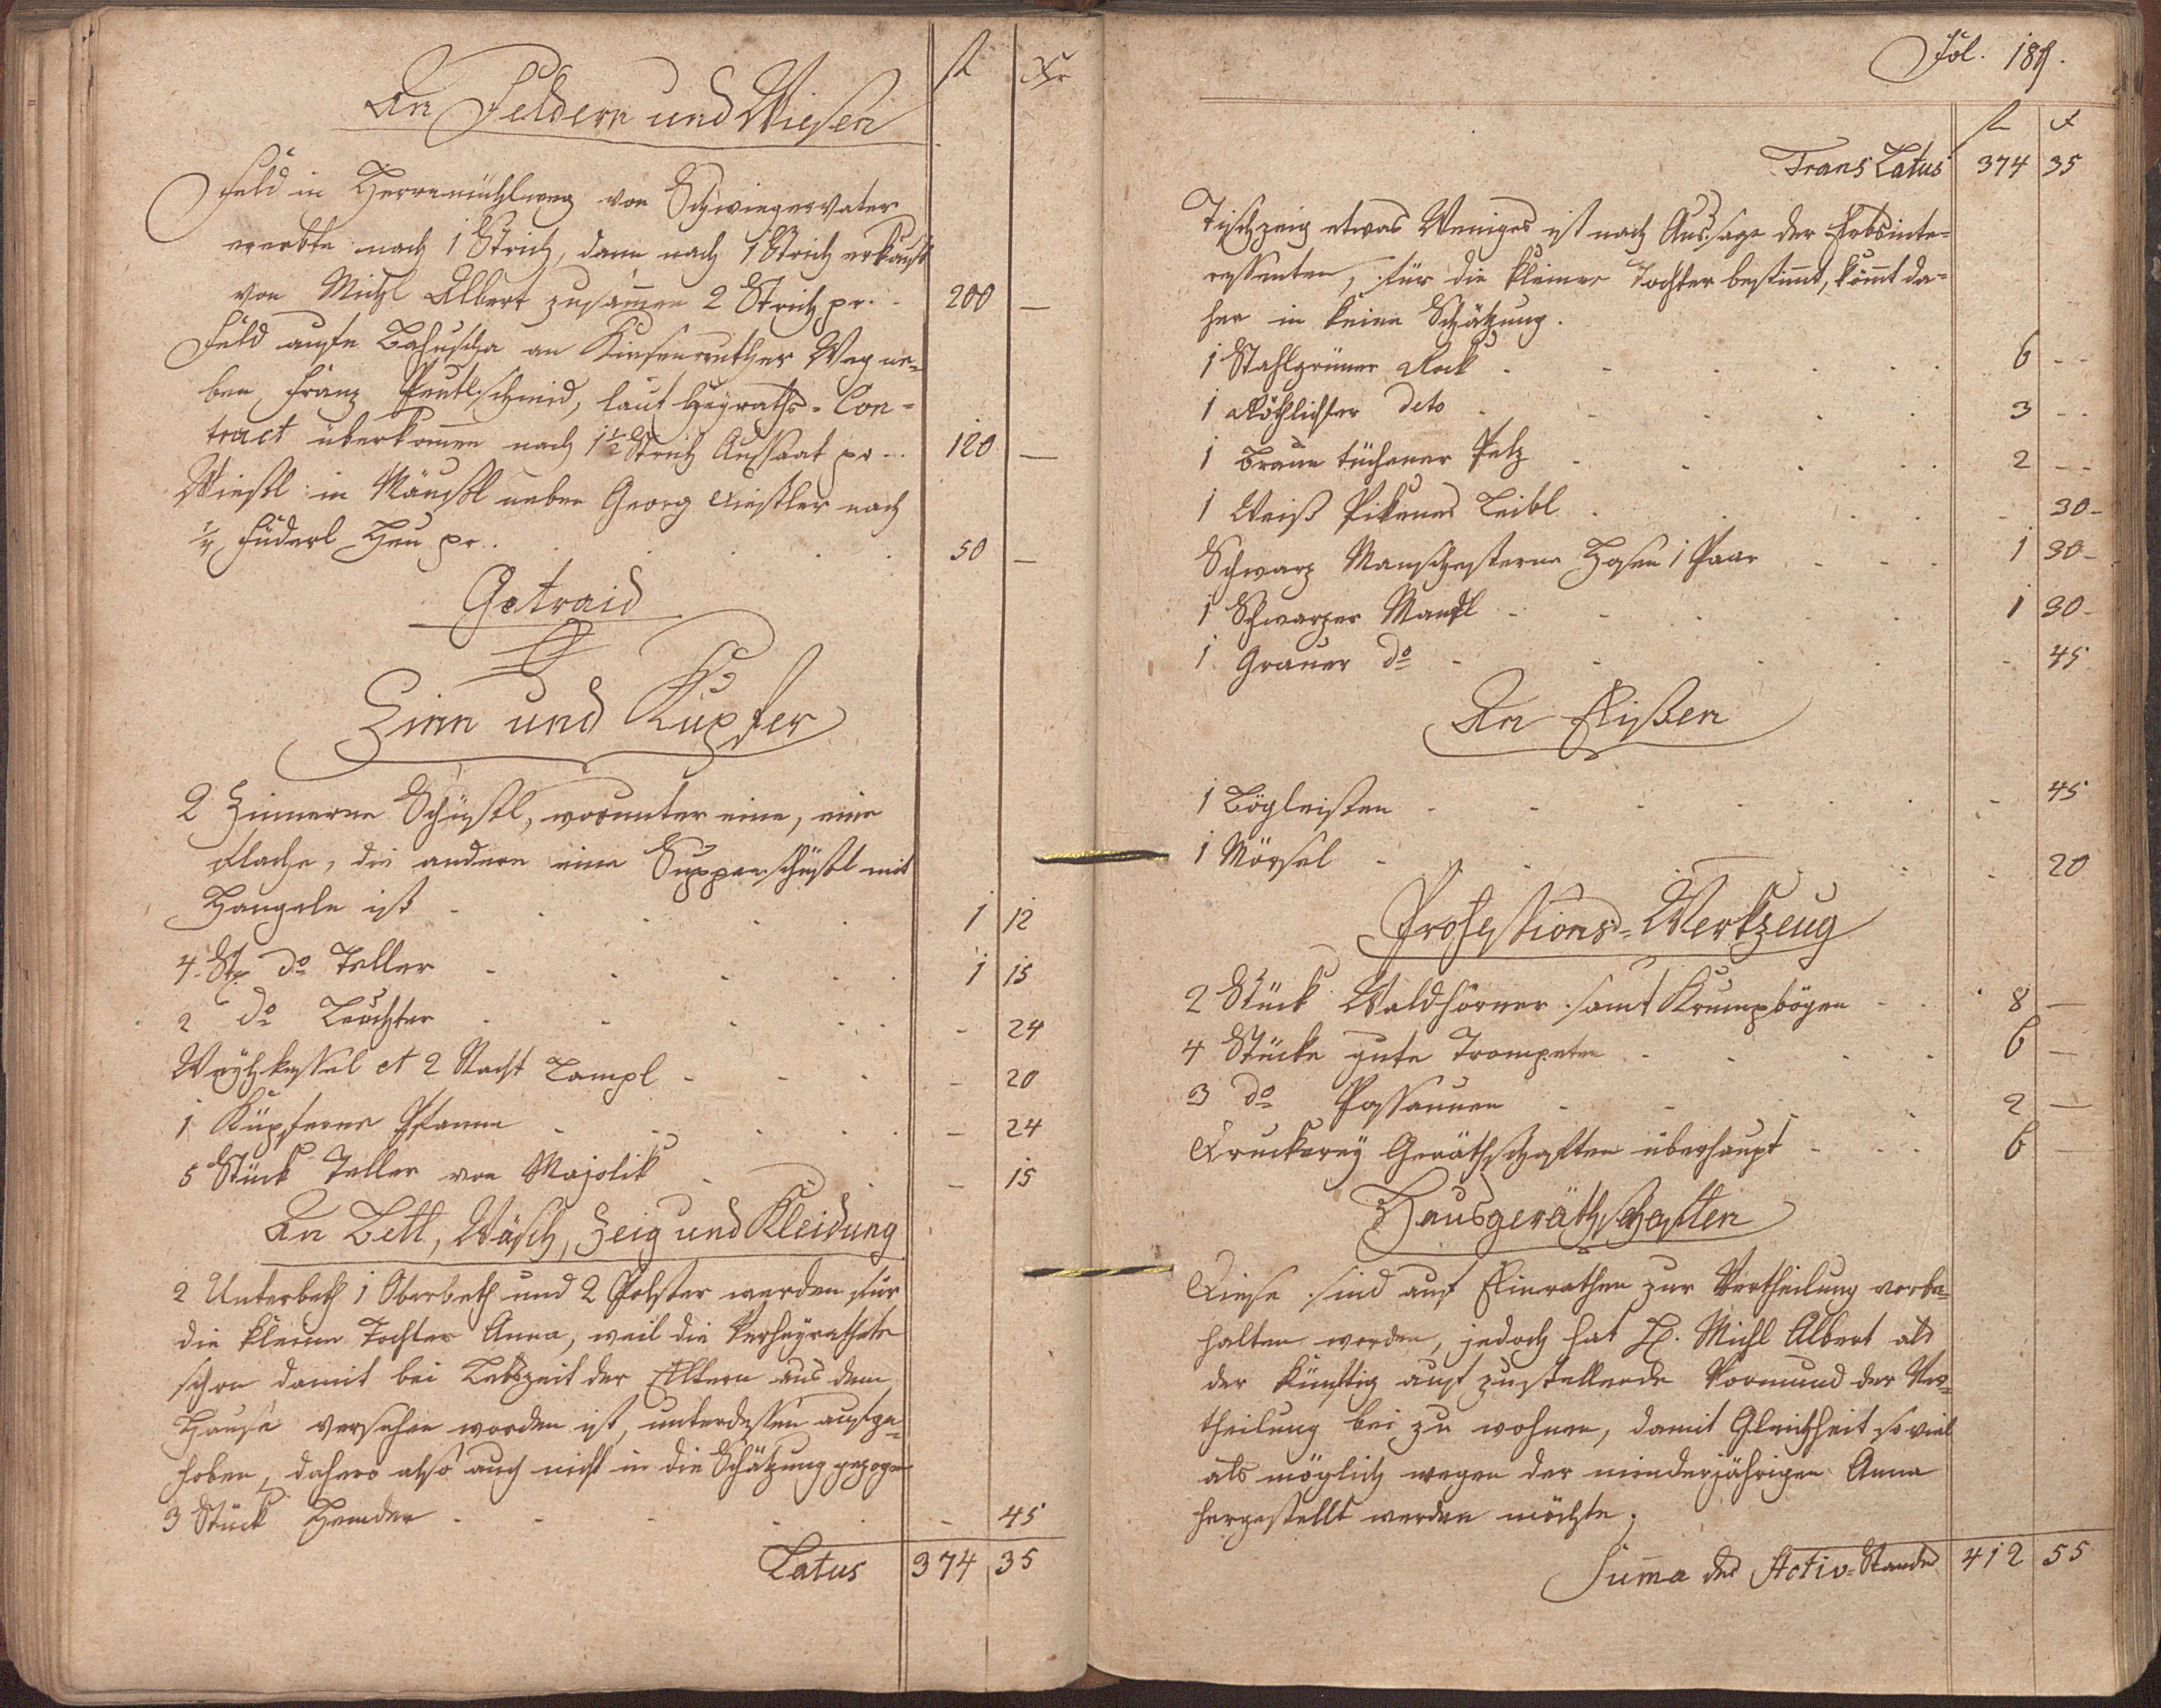 fl Xr
An Feldern und Wiesen
Feld in Herrnmühlweg von Schwiegervater
ererbte nach 1 Strich, dann nach 1 Strich erkauft
von Michl Albert zusam̄en 2 Strich pr. 200 —
Feld aufn an Kiesenreuther Weg ne-
ben Franz, laut Heyraths-Con-
tract überkom̄en nach 1 1/2 Strich Aussaat pr 120 —
Wießl in Mäußl neben Georg nach
1/4 Füderl Heu pr. 50 —
Getraid
Zinn und Kupfer
2 Zinnerne Schüßl, worunter eine, eine
Flache, die andere eine Suppenschüßl mit
Hangeln ist 1 12
4 Stk do Teller 1 15
2 do Leüchter - 24
Weyhkessel et 2 Nacht Lampl - 20
1 Küpferne Pfanne - 24
5 Stück Teller von Majolik - 15
An Bett, Wäsch, Zeig und Kleidung
2 Unterbeth 1 Oberbeth und 2 Polster werden für
die kleine Tochter Anna, weil die verheyrathete
schon damit bei Lebszeit der Eltern aus dem
Hause versehen worden ist, unterdessen aufge-
hoben, dahero also auch nicht in die Schätzung gezogen
3 Stück Hemder - 45
Latus 374 35
Fol. 189.
fl x
Trans Latus 374 35
Tischzeig etwas Weniges ist nach Aussage der Erbsinte-
ressenten, für die kleiner Tochter bestim̄t, kom̄t da-
her in keine Schätzung.
1 Stahlgrüner Rock 6 --
1 Röthlichter deto 3 --
1 Braun tüchener Pelz 2 --
1 Weiß Pikenes Leibl - 30-
Schwarz Manschesterne Hosen 1 Paar 1 30-
1 Schwarzer Mantl 1 30-
1 Grauer do - 45
An Eißen
1 Bögleißen - 45
1 Mörsel - 20
Professions-Werkzeug
2 Stück Waldhörner samt Krumpbögen 8 —
4 Stücke gute Trompeten 6 —
3 do Possaunen 2 —
Druckerey Geräthschaften überhaupt 6 —
Hausgeräthschaften
Diese sind auf Einrathen zur Vertheilung vorbe-
halten worden, jedoch hat H. Michl Albert als
der künftig auf zustellende Vormund der Ver-
theilung bei zu wohnen, damit Gleichheit so viel
als möglich wegen der minderjährigen Anna
hergestellt werden möchte.
Sum̄a des Activ-Standes 412 55